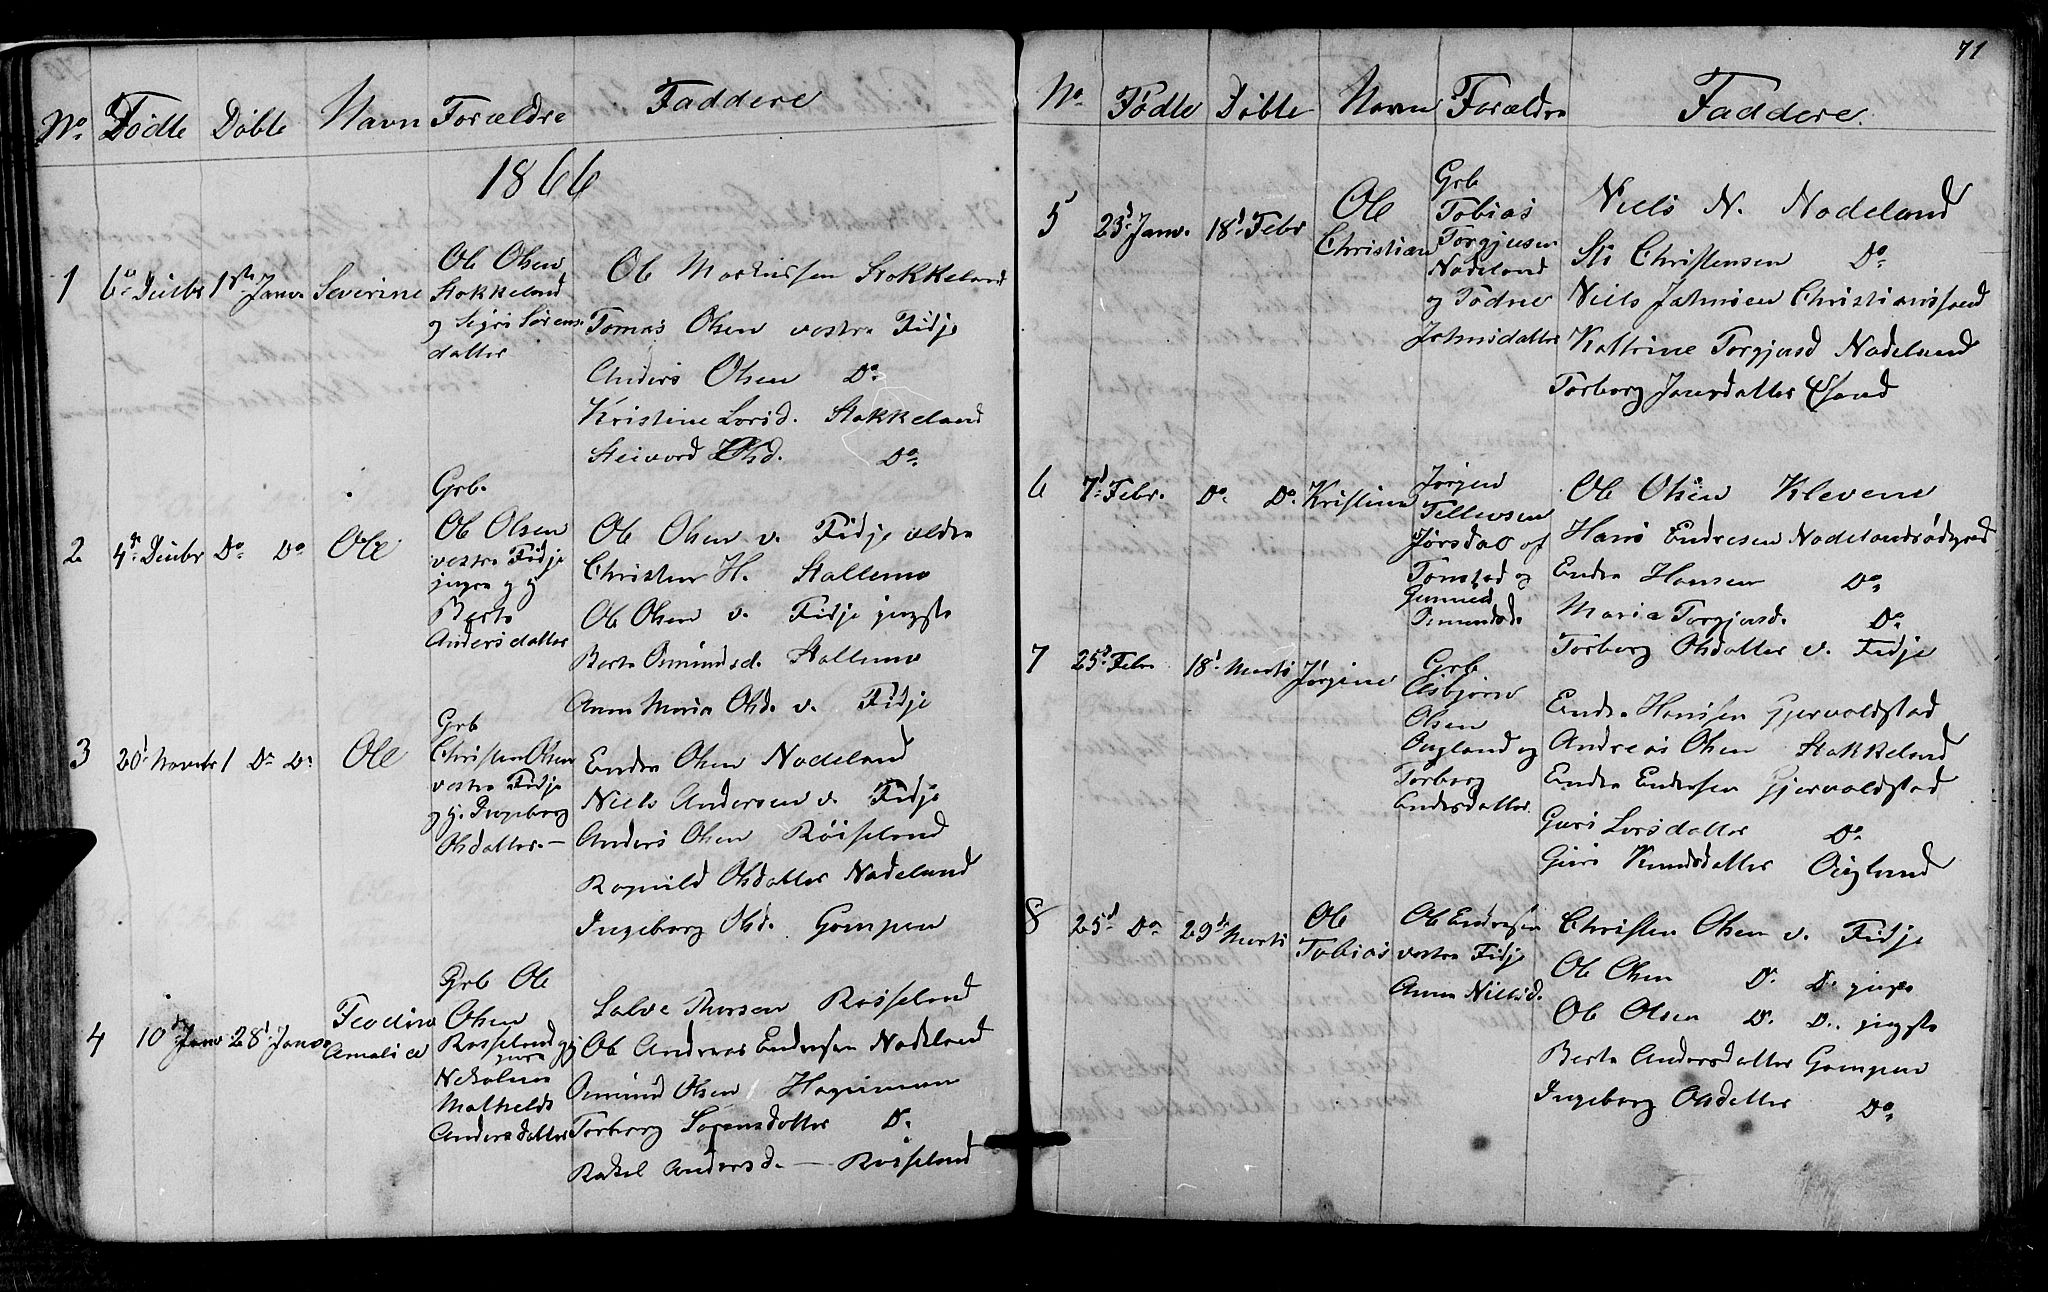 No. Födte Döbte Navn Forældre Faddere
1866
1 6te Decbr 1ste Janv. Severine
Ole Olsen
Stokkeland
og Sigri Sørens
datter
Ole Mathissen Stokkeland
Tomas Olsen vestre Fidje
Anders Olsen Do.
Kristine Larsd. Stokkeland
Olsd. Do.
2 4de Decbr Do Do Ole
Grb.
Ole Olsen
vestre Fidje
yngre og
Berte
Andersdatter
Ole Olsen v. Fidje eldre
Christen H. Stallemo
Ole Olsen v. Fidje yngste
Berte Osmundsd. Stallemo
Anne Maria Olsd. v. Fidje
3 20d Novebr Do Do Ole
Grb
Christen Olsen
vestre Fidje
og Ingeborg
Olsdatter.—
Endre Olsen Nodeland
Niels Andersen v. Fidje
Anders Olsen Röiseland
Ragnild Olsdatter Nodeland
Ingeborg Olsd. Gompen
4 10de Janv 28d Janv. Teodine
Amalie
Grb Ole
Olsen
Røiseland og
Nekoline
Mathelde
Andersdatter
Salve Thorsen Røiseland
Ole Andreas Endresen Nodeland
Osmund Olsen Hagmman
Torborg Sørensdatter Do.
Rakel Andersd. — Røiseland
71
No. Födte Döbte Navn Forældre Faddere.
5 23d Janv. 18d Febr Ole
Christian
Grb
Tobias
Torgjusen
Nodeland
og Todne
Johnsdatter
Niels N. Nodeland
Christensen Do.
Niels Johnsen Christianssand
Kattrine Torgjusd Nodeland
Torborg Jensdatter
6 7d Febr. Do Do. Kristine
Jørgen
Tellevsen
af
Tomstad og
Gunnild
Omundsd.
Ole Olsen Klevene
Hans Endresen Nodelandsødgrd
Endre Hansen Do.
Maria Torgjusd. Do.
Torborg Olsdatter v. Fidje
7 25d Febr 18d Marts Jørgine
Grb
Esbjørn
Olsen
Øugland og
Torborg
Endresdatter.
Endre Hanssen Gjervoldstad
Andreas Olsen Stokkeland
Endre Endresen Gjervoldstad
Guri Larsdatter Do.
Guri Knudsdatter Øugland
8 25d Do 29de Marts Ole
Tobias
Ole Endresen
vestre Fidje
Anne Nielsd.
Christen Olsen v. Fidje
Ole Olsen D. D. yngre
Ole Olsen D. D. yngste
Berte Andersdatter Gompen
Ingeborg Olsdatter Do.